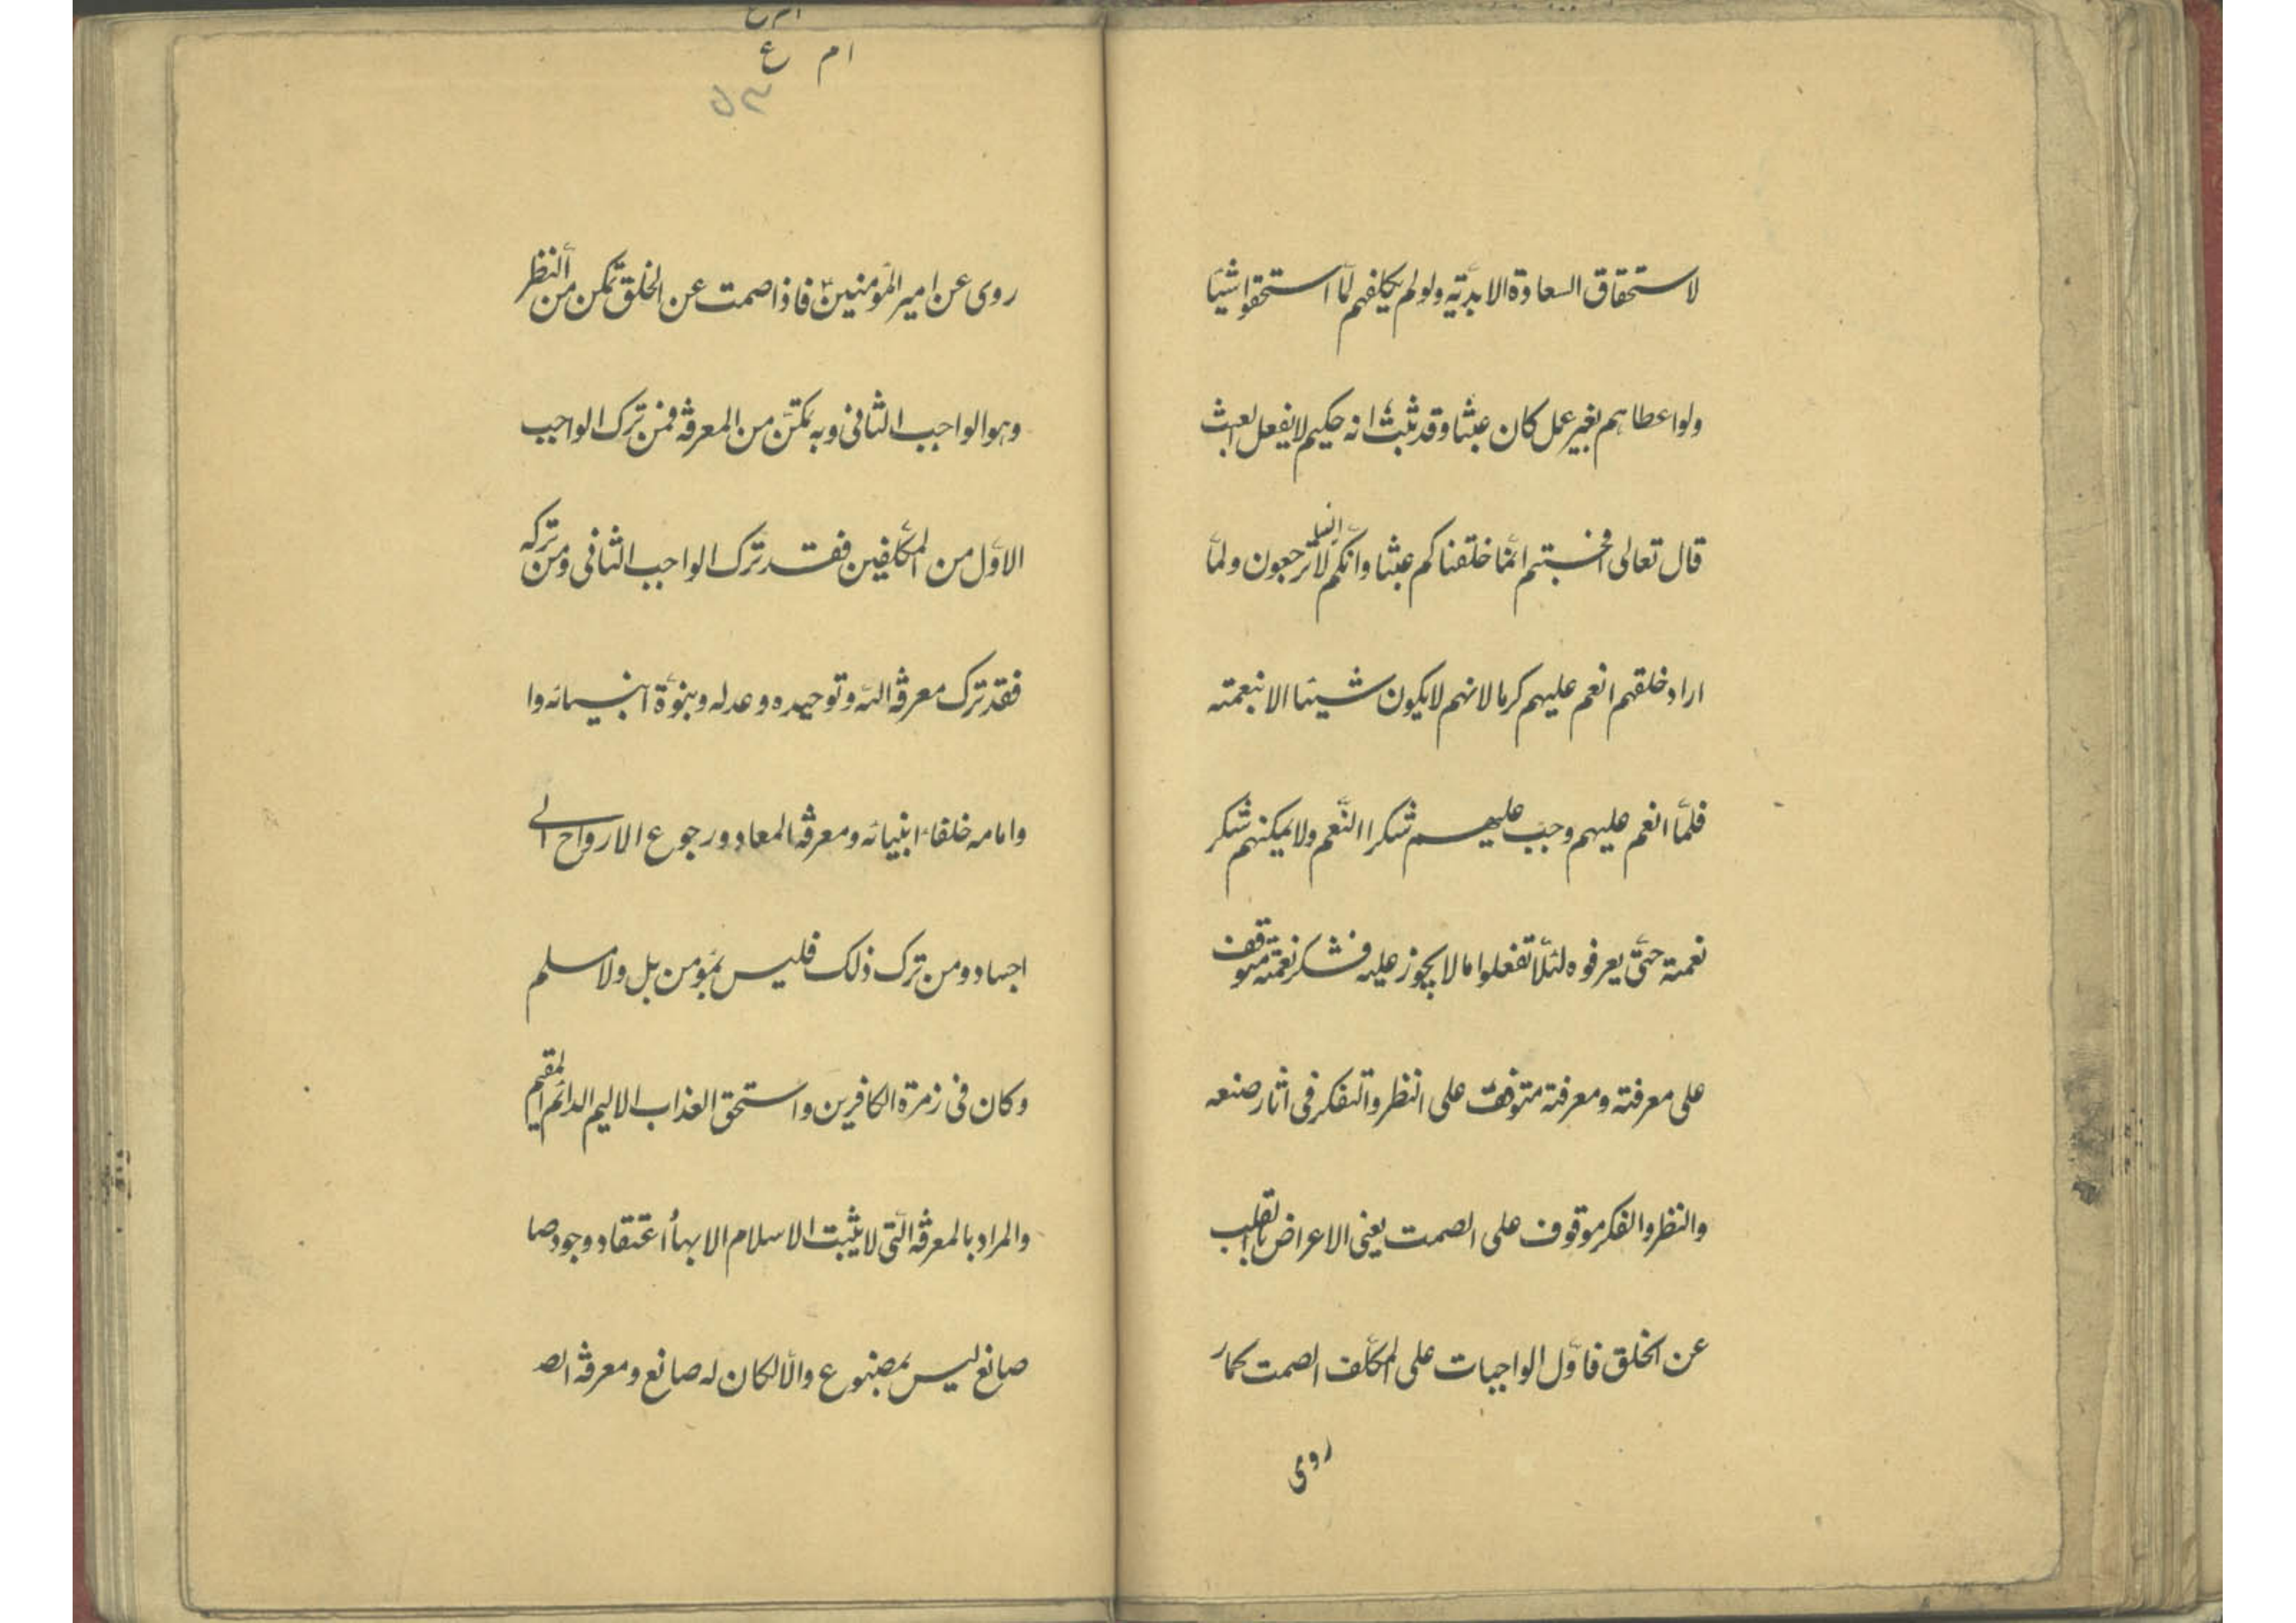 لاستحقاق السعادة الابديّة ولو لم يكلفهم لمّا استحقوا شيئا
ولو اعطاهم بغير عمل كان عبثا وقد ثبت انه حكيم لا يفعل العبث
قال تعالى افحسبتم انمّا خلقناكم عبثا وانّكم الينا لا ترجعون ولمّا
اراد خلقهم انعم عليهم كرما لانهم لا يكون شيئا الا بنعمته
فلمّا انعم عليهم وجب عليهم شكر النّعم ولا يمكنهم شكر
نعمته حتىّ يعرفوه لئلّا تفعلوا ما لا يجوز عليه فشكر نعمته متوقف
على معرفته ومعرفته متوقف على النظر والتفكر فى اثار صنعه
والنظر والفكر موقوف على الصمت يعنى الاعراض بالقلب
عن الخلق فاوّل الواجبات على المكلّف الصمت كما ر
روى
ام ع
روى عن امير المؤمنين فاذا صمت عن الخلق تمكّن من النّظر
وهو الواجب الثانى وبه يمكّن من المعرفة فمن ترك الواجب
الاوّل من المكلّفين فقد ترك الواجب الثانى ومن تركه
فقد ترك معرفة اللّه وتوحيده وعدله ونبوّة انبيائه وا
وامامه خلفاء انبيائه ومعرفة المعاد ورجوع الارواح الى
اجساد ومن ترك ذلك فليس بمؤمن بل ولا مسلم
وكان فى زمرة الكافرين واستحق العذاب الاليم الدائم المقيم
والمراد بالمعرفة الّتى لا يثبت الاسلام الا بها اعتقاد وجود صا
صانع ليس بمصنوع والّا لكان له صانع ومعرفة الص